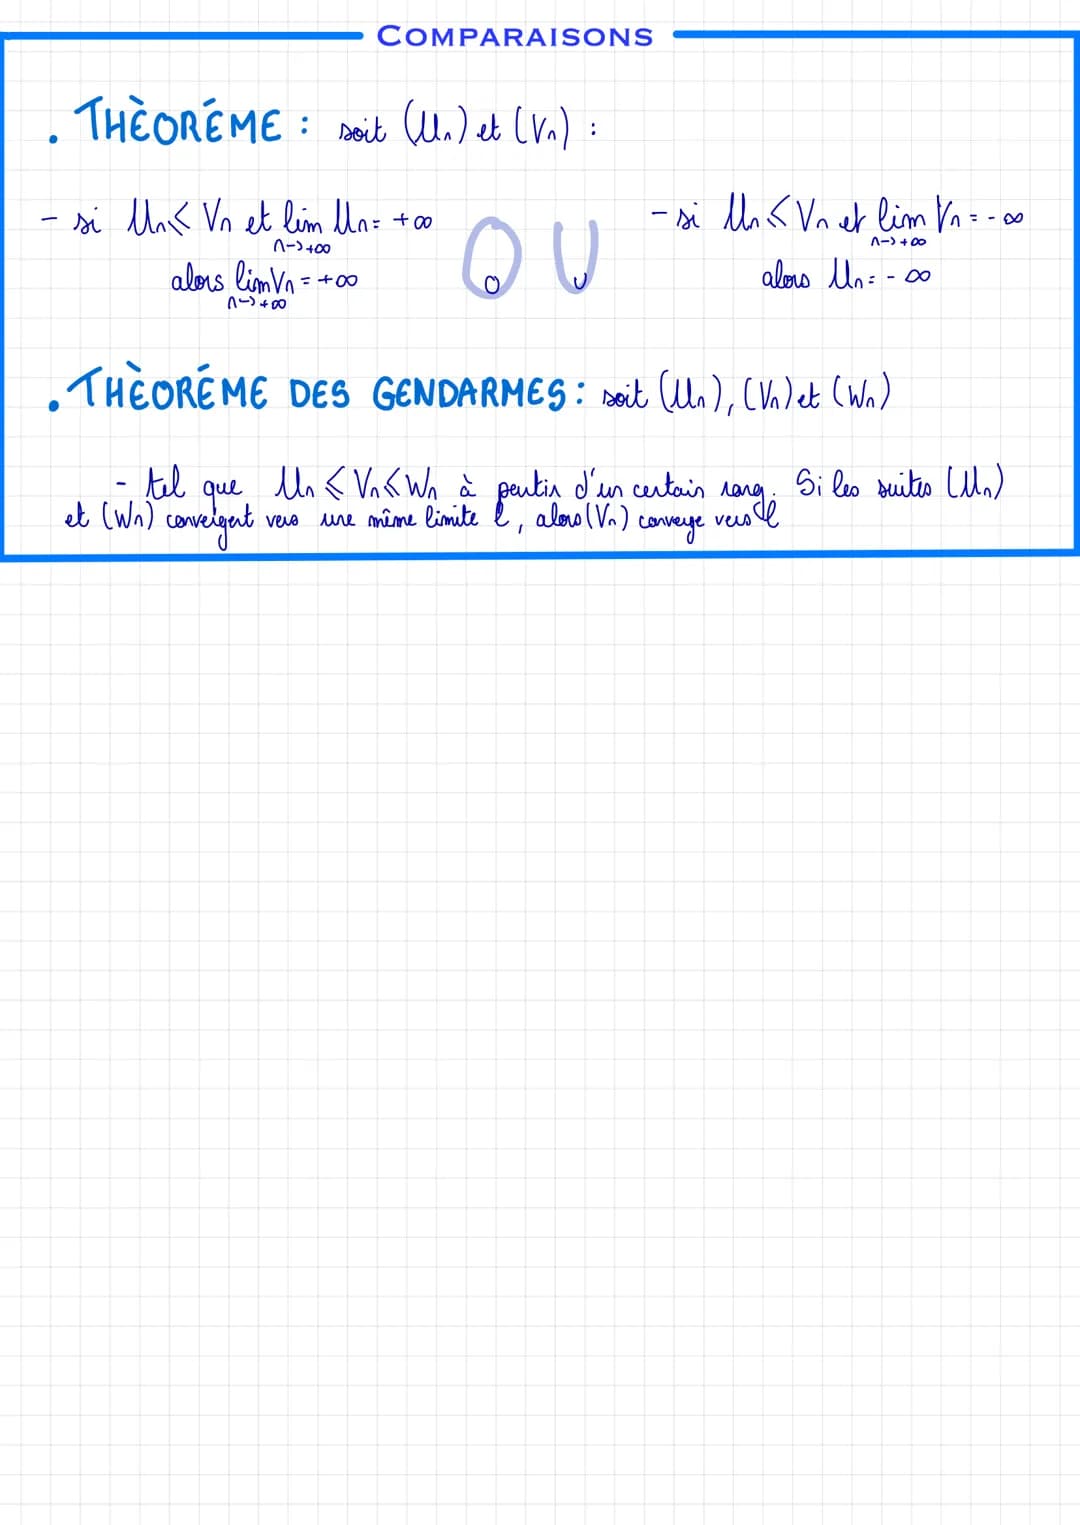 COMPARAISONS
. THÈORÉME : soit (Un) et (Vn) :
- si Un ≤ Vn et lim Un = +∞
n->+∞
alors lim Vn = +∞
n->+∞
OU
- si Un ≤ Vn et lim Vn = -∞
n->+∞
alors Un = -∞
. THÈORÉME DES GENDARMES : soit (Un), (Vn) et (Wn)
- tel que Un ≤ Vn ≤ Wn à partir d'un certain rang. Si les suites (Un)
et (Wn) convergent vers une même limite ℓ, alors (Vn) converge vers ℓ